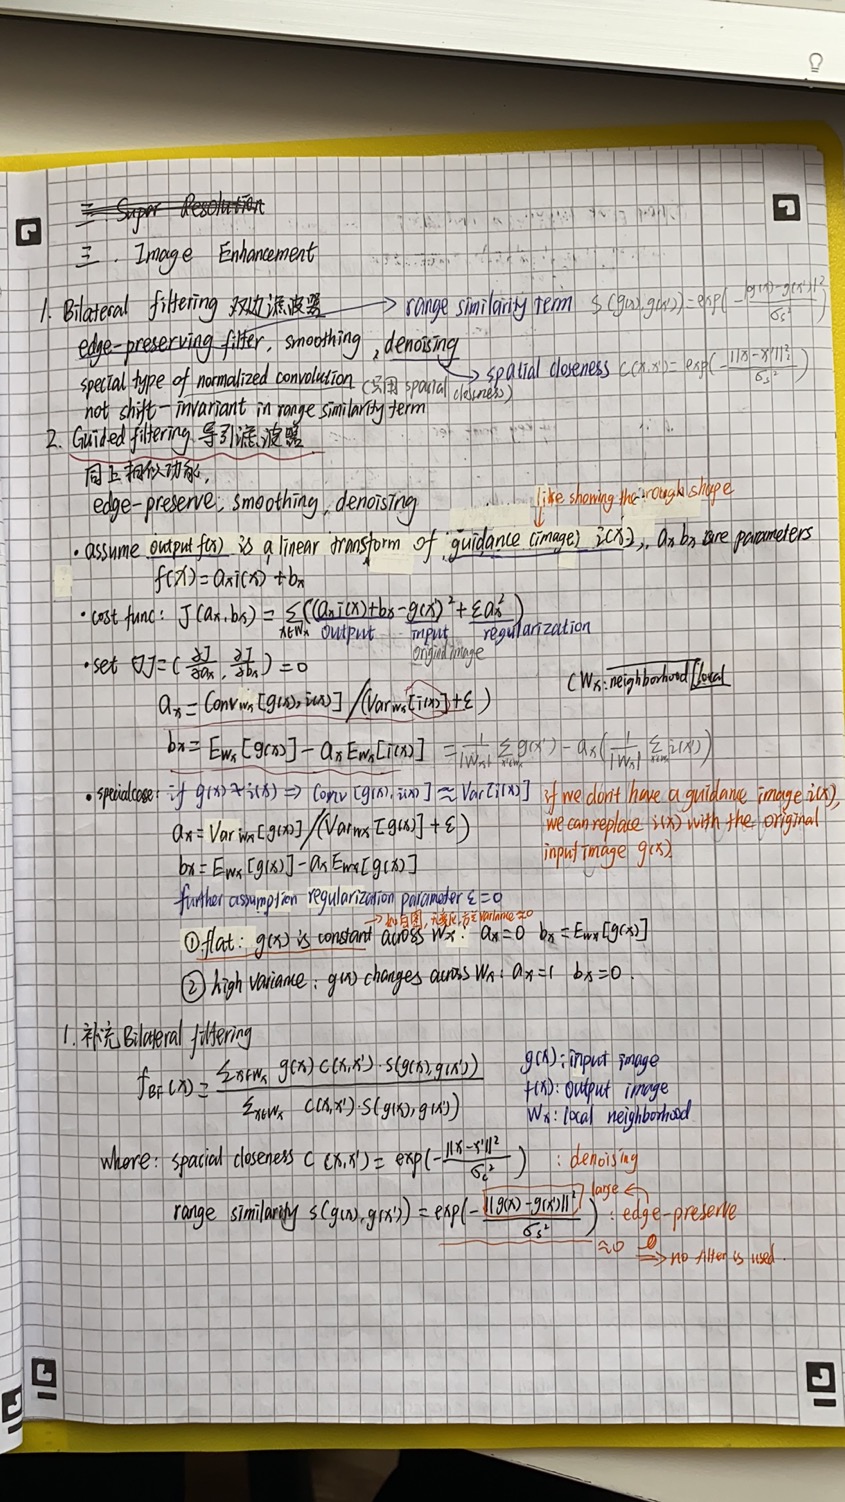 三. Super Resolution
三. Image Enhancement
1. Bilateral filtering 双边滤波器 → range similarity term S(g(x),g(x'))=exp(-|g(x)-g(x')|²/σs²)
edge-preserving filter, smoothing, denoising
→ spatial closeness C(x,x')= exp(-||x-x'||²/σs²)
special type of normalized convolution (只用 spacial closeness)
not shift-invariant in range similarity term
2. Guided filtering 导引滤波器
同上相似功能,
edge-preserve, smoothing, denoising
like showing the rough shape
• assume output f(x) is a linear transform of guidance (image) i(x), ax bx are parameters
f(x)=ax i(x)+bx
• cost func: J(ax,bx) = Σx∈Wx((ax i(x)+bx-g(x))²+εax²)
output input regularization
original image
• set ∇J=(∂J/∂ax, ∂J/∂bx)=0
(Wx: neighborhood/local
ax = ConvWx[g(x),i(x)]/(VarWx[i(x)]+ε)
bx = EWx[g(x)]-axEWx[i(x)] = 1/|Wx| Σ g(x') - ax(1/|Wx| Σ i(x'))
• special case: if g(x)≈i(x) ⇒ Conv[g(x),i(x)]≈Var[i(x)]
if we don't have a guidance image i(x),
we can replace i(x) with the original
input image g(x).
ax=VarWx[g(x)]/(VarWx[g(x)]+ε)
bx=EWx[g(x)]-axEWx[g(x)]
further assumption regularization parameter ε=0
① flat: g(x) is constant across Wx: ax=0 bx=EWx[g(x)]
② high variance: g(x) changes across Wx: ax=1 bx=0.
1. 补充Bilateral filtering
fBF(x)= Σx∈Wx g(x) C(x,x')·S(g(x),g(x')) / Σx∈Wx C(x,x')·S(g(x),g(x'))
g(x): input image
f(x): output image
Wx: local neighborhood
where: spacial closeness C(x,x')= exp(-||x-x'||²/σc²) : denoising
large ←
range similarity S(g(x),g(x'))=exp(-||g(x)-g(x')||²/σs²) : edge-preserve
≈0 ⇒ no filter is used.